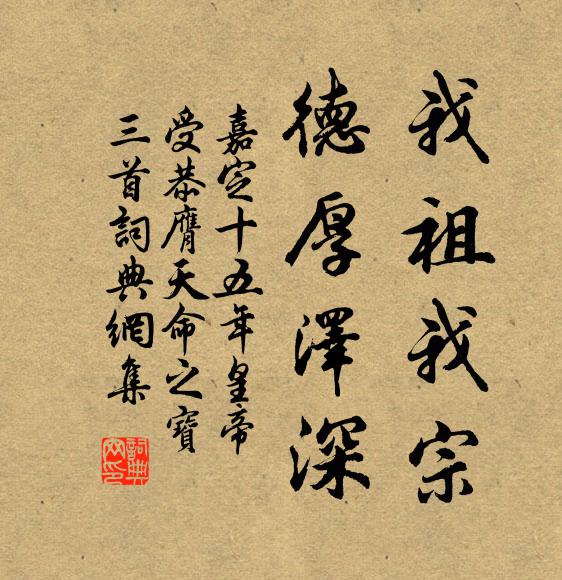 我祖我宗
德厚澤深
嘉定十五年皇帝
受恭膺天命之寶
三首詞典網集
詞典網印